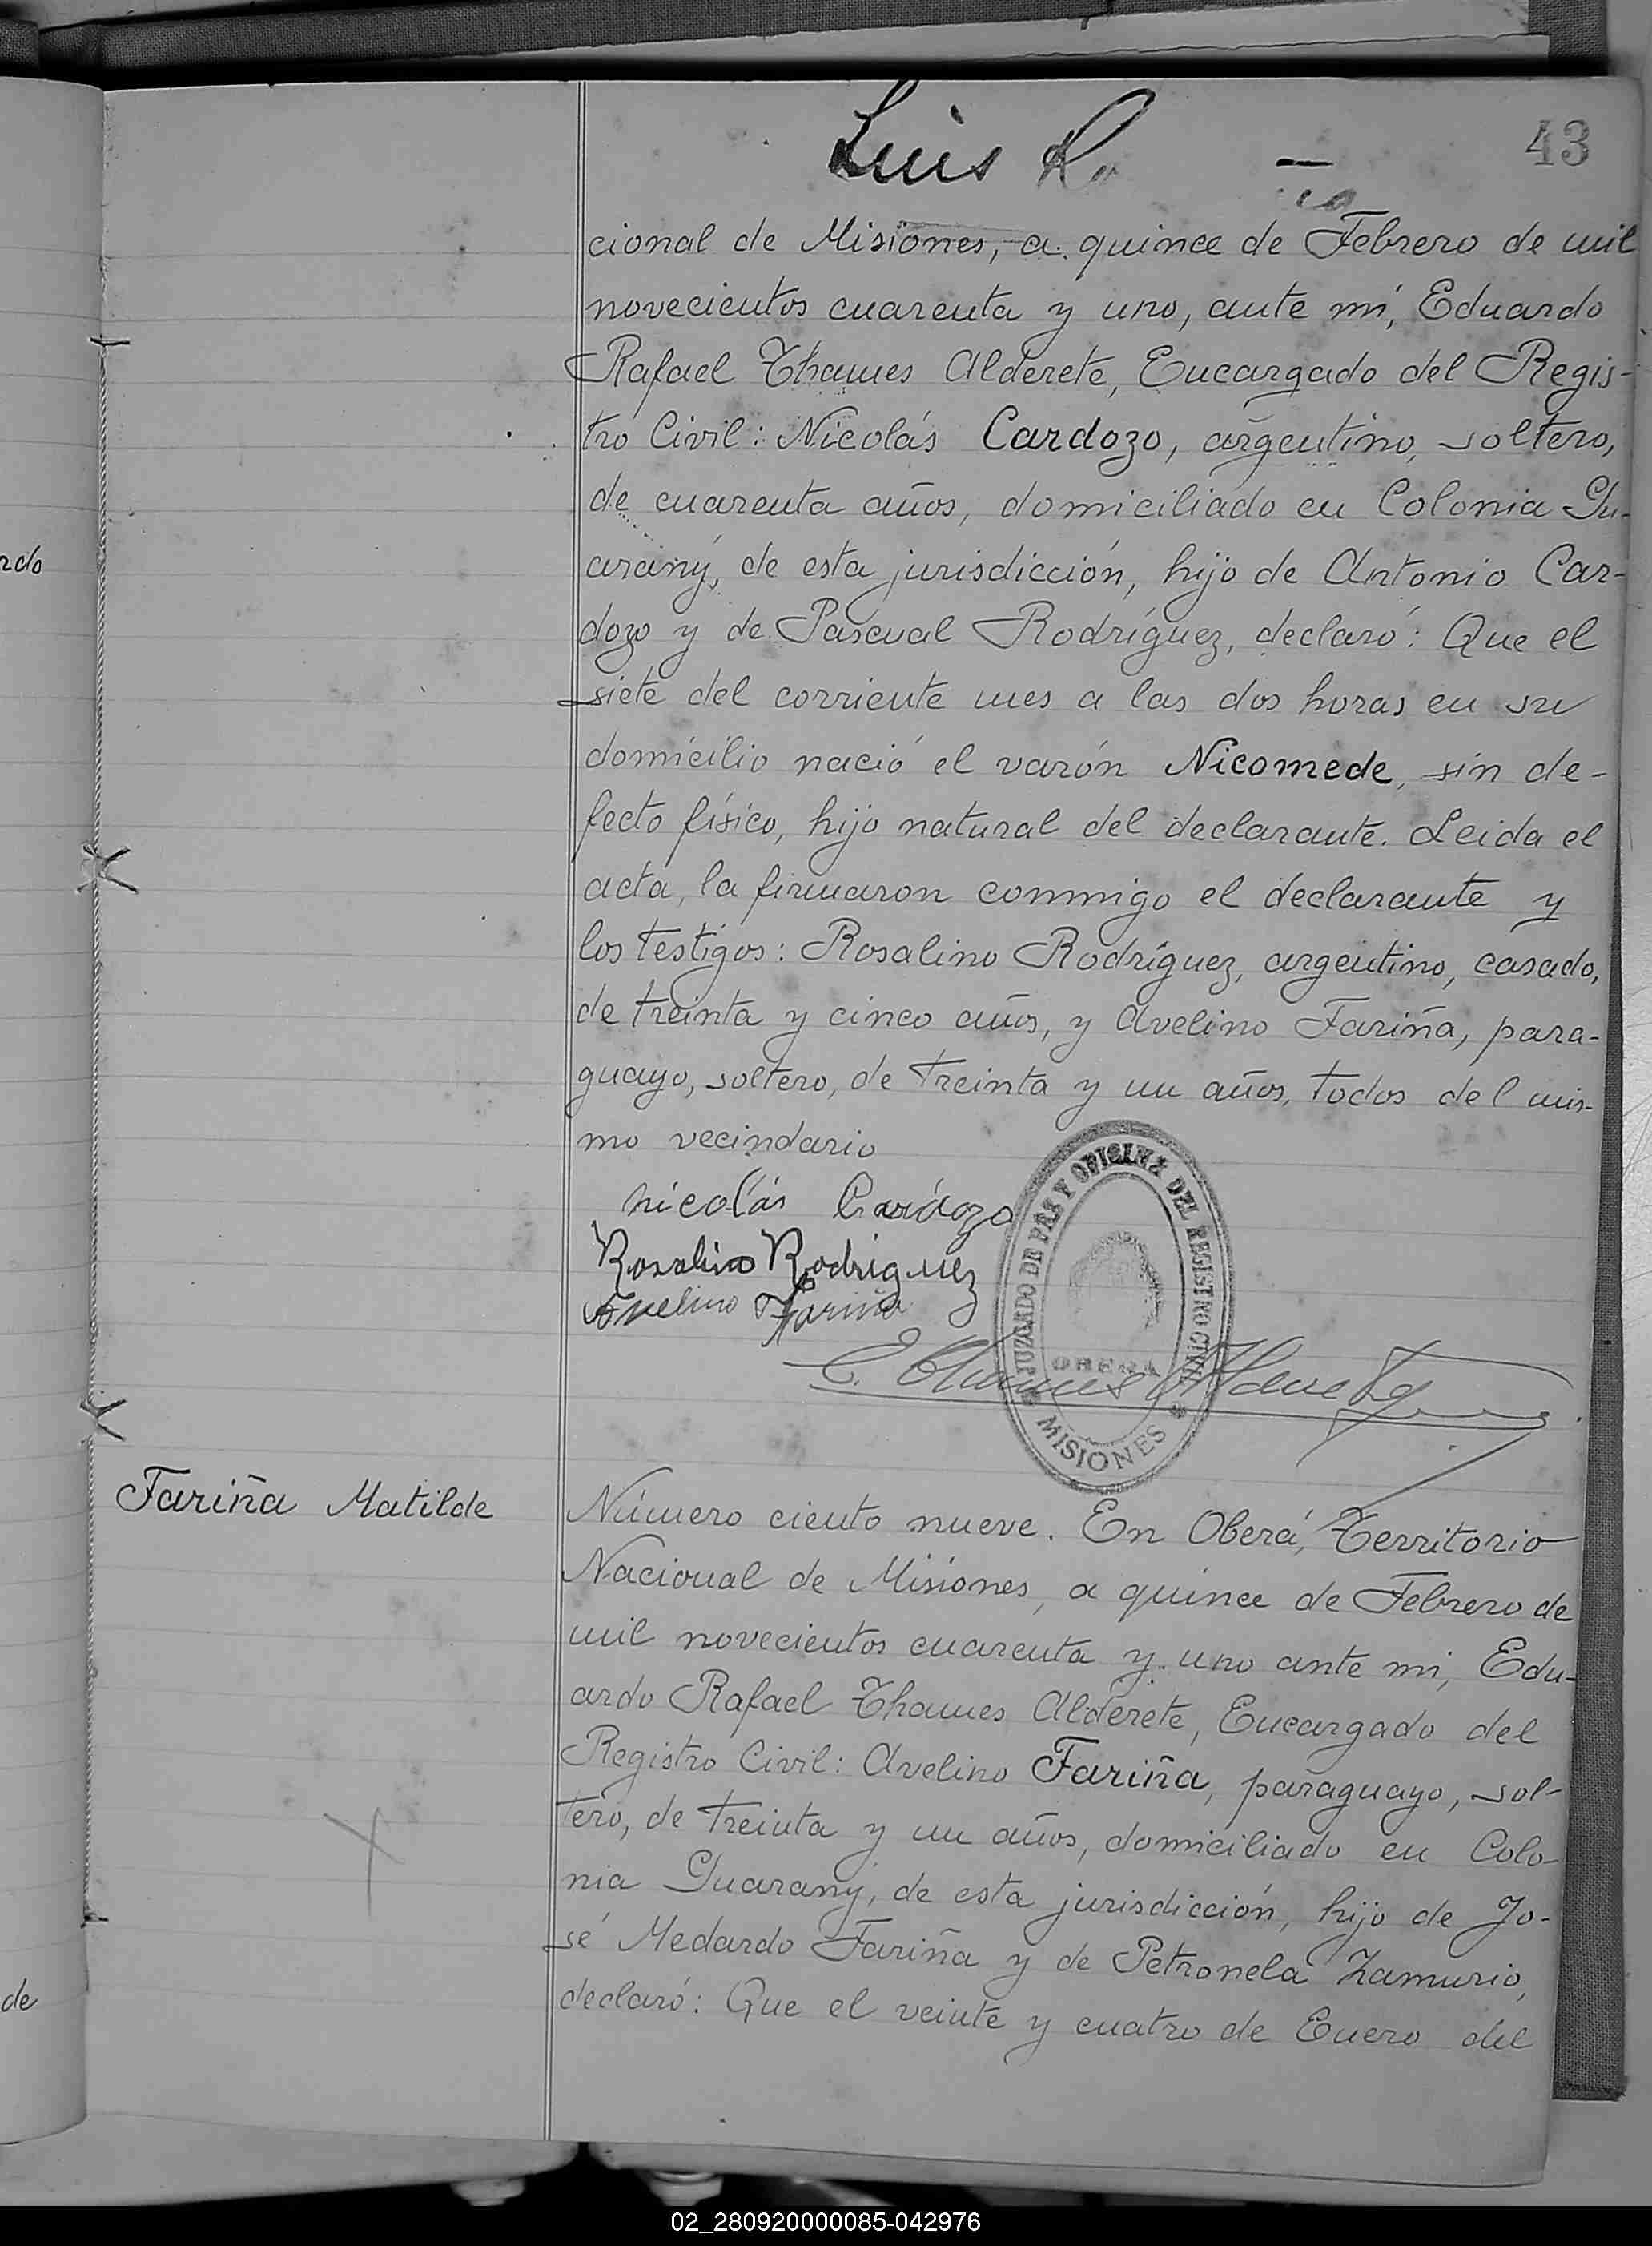 43
Luis
cional de Misiones, a quince de Febrero de mil
novecientos cuarenta y uno, ante mí, Eduardo
Rafael Thames Alderete, Encargado del Regis-
tro Civil: Nicolás Cardozo, argentino, soltero,
de cuarenta años, domiciliado en Colonia Gu-
arany, de esta jurisdicción, hijo de Antonio Car-
dozo y de Pascual Rodríguez, declaró: Que el
siete del corriente mes a las dos horas en su
domicilio nació el varón Nicomede, sin de-
fecto físico, hijo natural del declarante. Leida el
acta, la firmaron conmigo el declarante y
los testigos: Rosalino Rodríguez, argentino, casado,
de treinta y cinco años, y Avelino Fariña, para-
guayo, soltero, de treinta y un años, todos del mis-
mo vecindario
nicolás Cardozo
Rosalino Rodriguez
Avelino Fariña
E. Thames Alderete
JUZGADO DE PAS Y OFICINA DEL REGISTRO CIVIL
OBERA
* MISIONES *
rdo
Fariña Matilde
Número ciento nueve. En Oberá, Territorio
Nacional de Misiones, a quince de Febrero de
mil novecientos cuarenta y uno ante mi, Edu-
ardo Rafael Thames Alderete, Encargado del
Registro Civil: Avelino Fariña, paraguayo, sol-
tero, de treinta y un años, domiciliado en Colo-
nia Guarany, de esta jurisdicción, hijo de Jo-
sé Medardo Fariña y de Petronela Zamurio,
declaró: Que el veinte y cuatro de Enero del
de
02_280920000085-042976